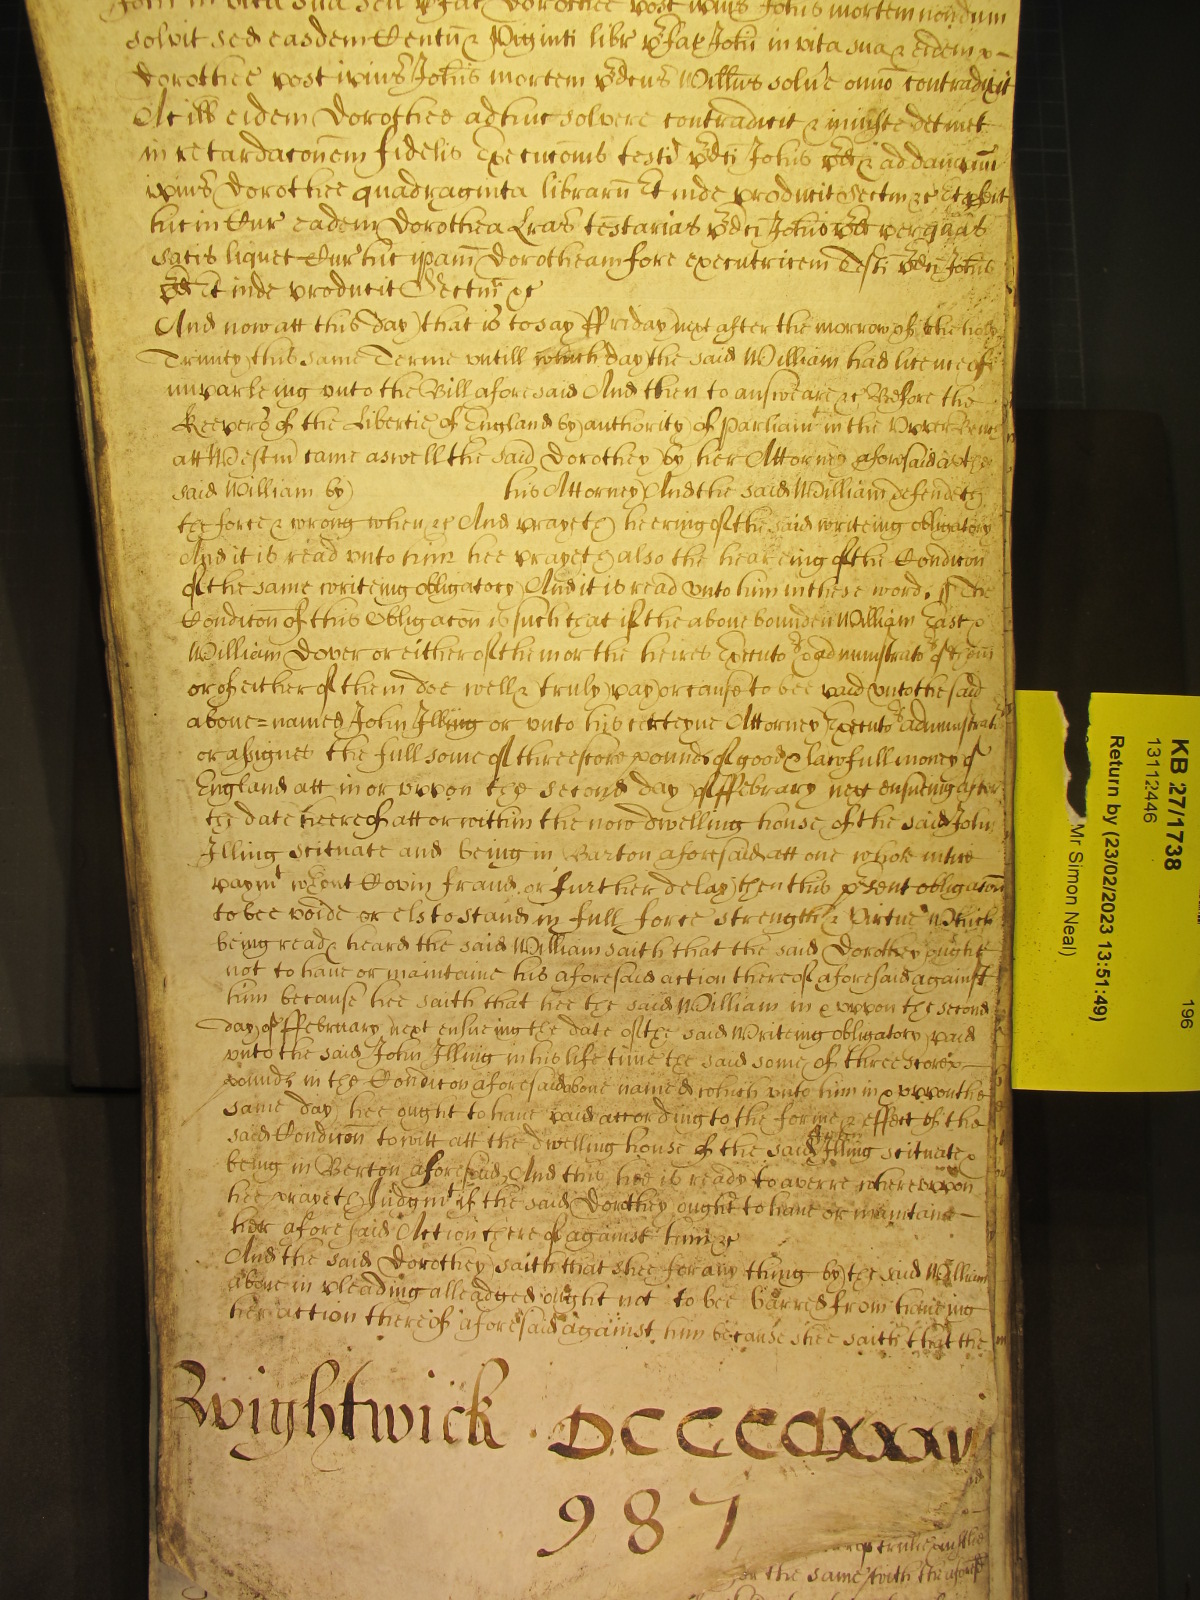 John in vita sua seu p̄fat Dorothee post ip̄ius Joh̄is mortem nondum
solvit sed easdem Centū & Viginti libr p̄fat Joh̄i in vita sua & eidem
Dorothee post ip̄ius Joh̄is mortem p̄dcūs Will̄us solūe om̄o contradixit
Ac ill̄ eidem Dorothee adhuc solvere contradicit & iniuste detinet
in retardacōnem fidelis Execucōnis testi p̄dci Joh̄is p̄d & ad dampnū
ip̄ius Dorothee quadraginta librarū Et inde producit Sectm &c Et p̄fert
hic in Cur eadem Dorothea Lrās testarias p̄dci Joh̄is p̄d per quas
satis liquet Cur hic ip̄am Dorotheam fore executricem Testi p̄dci Joh̄is
p̄d Et inde producit Sectm &c
And now att this day that is to say ffriday next after the morrow of the holy
Trinity this same Terme untill which day the said William had licence of
imparleing unto the Bill aforesaid And then to answeare &c Before the
Keepers of the Libertie of England by authority of Parliamt in the Upper Bench
att Westm̄ came aswell the said Dorothey by her Attorney aforesaid as the
said William by his Attorney And the said William defendeth
the force & wrong when &c And prayeth heering of the said writeing obligatory
And it is read unto him hee prayeth also the heareing of the Condicon
of the same writeing obligatory And it is read unto him in these word. The
Condicōn of this Obligacōn is such that if the above bounden William East
William Dover or either of them or the heires Executors administrators of them
or of either of them doe well & truly pay or cause to bee paid unto the said
above=named John Illing or unto his certeyne Attorney Executors administrat
or assignes the full some of threescore pounds of good & lawfull money of
England att in or uppon the second day of ffebruary next ensueing after
the date heereof att or within the now dwelling house of the said John
Illing scituate and being in Barton aforesaid att one whole intire
paymt wthout Covin fraud or further delay then this p̄sent obligacōn
to bee voide or els to stand in full force strength & virtue which
being read & heard the said William saith that the said Dorothey ought
not to have or maintaine his aforesaid action thereof aforesaid against
him because hee saith that hee the said William in & uppon the second
day of ffebruary next ensueing the date of the said Writeing obligatory paid
unto the said John Illing in his life time the said some of three score
pounds in the Condicon aforesaid above named which unto him in & uppon the
same day hee ought to have paid according to the forme & effect of the
said Condicōn to witt att the dwelling house of the said John Illing scituate
being in Berton aforesaid And this hee is ready to averre whereuppon
hee prayeth Judgmt if the said Dorothey ought to have or maintane
her aforesaid Action thereof against him &c
And the said Dorothey saith that shee for any thing by the said William
above in pleading alleadged ought not to bee barred from haveing
her action thereof aforesaid against him because shee saith that the
Wightwick DCCCCLXXXVII
987
or the same with the aforesd
KB 27/1738
13112446
Return by (23/02/2023 13:51:49)
Mr Simon Neal)
196